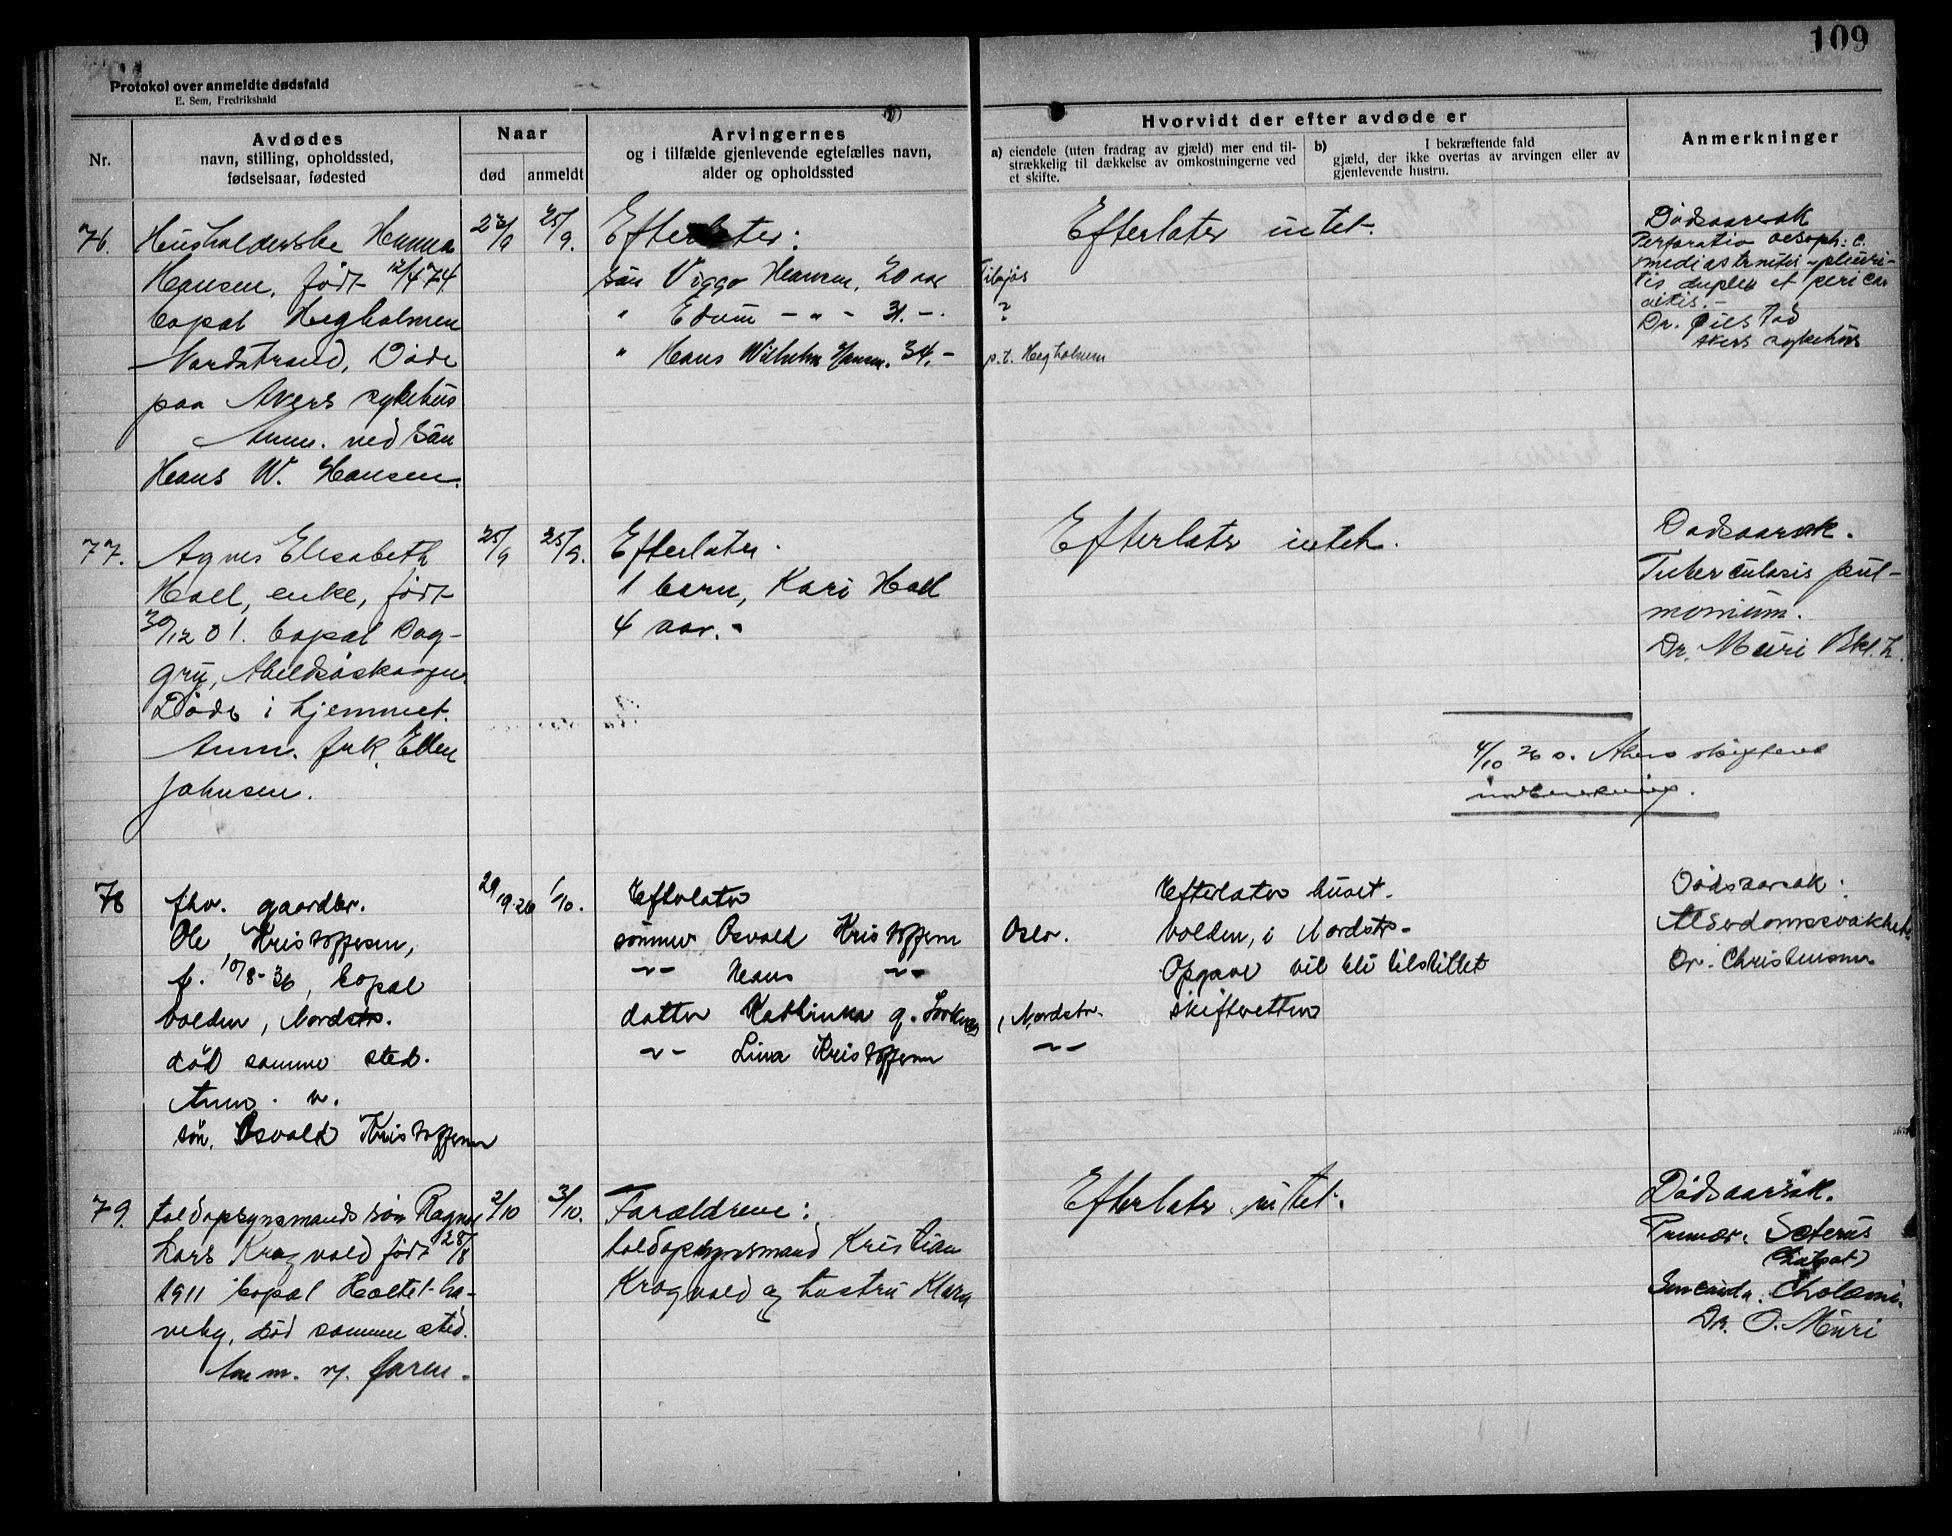 109
Protokol over anmeldte dødsfald
E. Sem, Fredrikshald
Nr.
Avdødes
navn, stilling, opholdssted,
fødselsaar, fødested
Naar
død
anmeldt
Arvingernes
og i tilfælde gjenlevende egtefælles navn,
alder og opholdssted
Hvorvidt der efter avdøde er
a) eiendele (uten fradrag av gjæld) mer end til-
strækkelig til dækkelse av omkostningerne ved
et skifte.
b) I bekræftende fald
gjæld, der ikke overtas av arvingen eller av
gjenlevende hustru.
Anmerkninger
76.
Husholderske Hanna
Hansen, født 12/4 74.
bopæl Hegholmen
Nordstrand, Døde
paa Akers sykehus
Anm. ved søn
Hans W. Hansen.
22/9
25/9.
Efterlater:
søn Viggo Hansen, 20 aar
" Edvin - " - 31. -.
" Hans Wilhelm Hansen. 34. -
p.t. Hegholmen
Efterlater intet.
Dødsaarsak
Perforatio oesoph: c.
mediastinitis - pleuri-
tis duplex et pericar
ditis. -
Dr.
Akers sykehus
77.
Agnes Elisabeth
Hoel, enke, født
30/12 01. bopæl Dag-
gry, Abildsøskogen.
Døde i hjemmet.
Anm. frk. Ellen
Johnsen.
25/9
25/9.
Efterlater.
1 barn, Kari Hoel
4 aar. -
Efterlater intet.
Dødsaarsak.
Tuberculosis pul-
monum.
Dr. Muri Bkl. h.
4/10 26 s. Akers skifteret
78
fhv. gaardbr.
Ole Kristoffersen,
f. 10/8-36, bopæl
Volden, Nordstr.
død samme sted.
Anm. v.
søn, Osvald Kristoffersen
29/9 26
1/10.
Efterlater
sønner Osvald Kristoffersen Oslo.
-"- Hans -"-
datter Kathinka g. , Nordstr.
-"- Lina Kristoffersen -"-
Efterlater huset
Volden, i Nordstr-
Opgave vil bli tilstillet
skifteretten
Dødsaarsak.
Alderdomssvakhet
Dr. Christensen.
79.
toldopsynsmands søn Ragnar
Lars Kragvold født 28/8
1911 bopæl Holtet ha-
veby, død samme sted.
Anm. v. faren.
2/10
3/10.
Forældrene:
toldopsynsmand Kristian
Kragvold og hustru Klara
Efterlater intet.
Dødsaarsak.
Primær. Icterus
Secundær. Cholæmi.
Dr. O. Muri